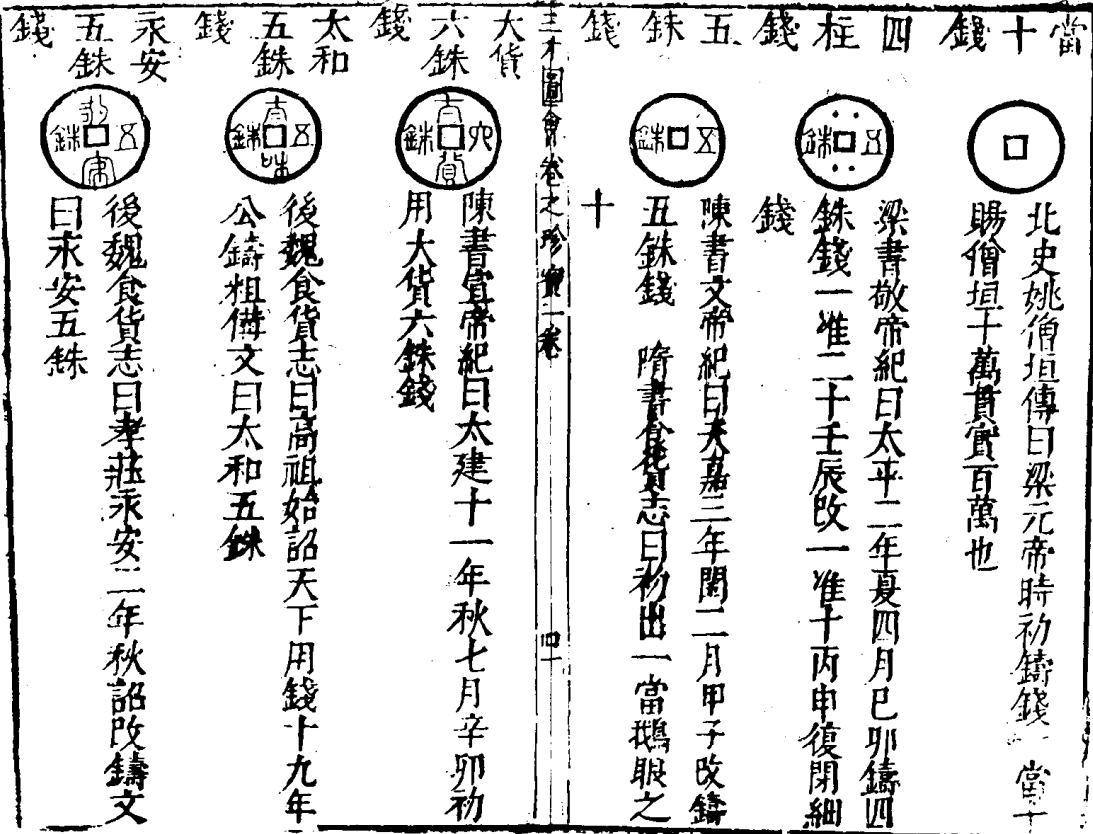 當十錢
北史姚僧垣傳曰梁元帝時初鑄錢一當十
賜僧垣十萬貫實百萬也
四柱錢
五銖
梁書敬帝紀曰太平二年夏四月巳卯鑄四
銖錢一准二十壬辰改一准十丙申復閉細
錢
五銖錢
五銖
陳書文帝紀曰天嘉三年閏二月甲子改鑄
五銖錢 隋書食貨志曰初出一當鵝眼之
十
三才圖會卷之珍寶一卷
四一
大貨六銖錢
大貨六銖
陳書宣帝紀曰太建十一年秋七月辛卯初
用大貨六銖錢
太和五銖錢
五銖
後魏食貨志曰高祖始詔天下用錢十九年
公鑄粗備文曰太和五銖
永安五銖錢
五銖
後魏食貨志曰孝莊永安二年秋詔改鑄文
曰永安五銖